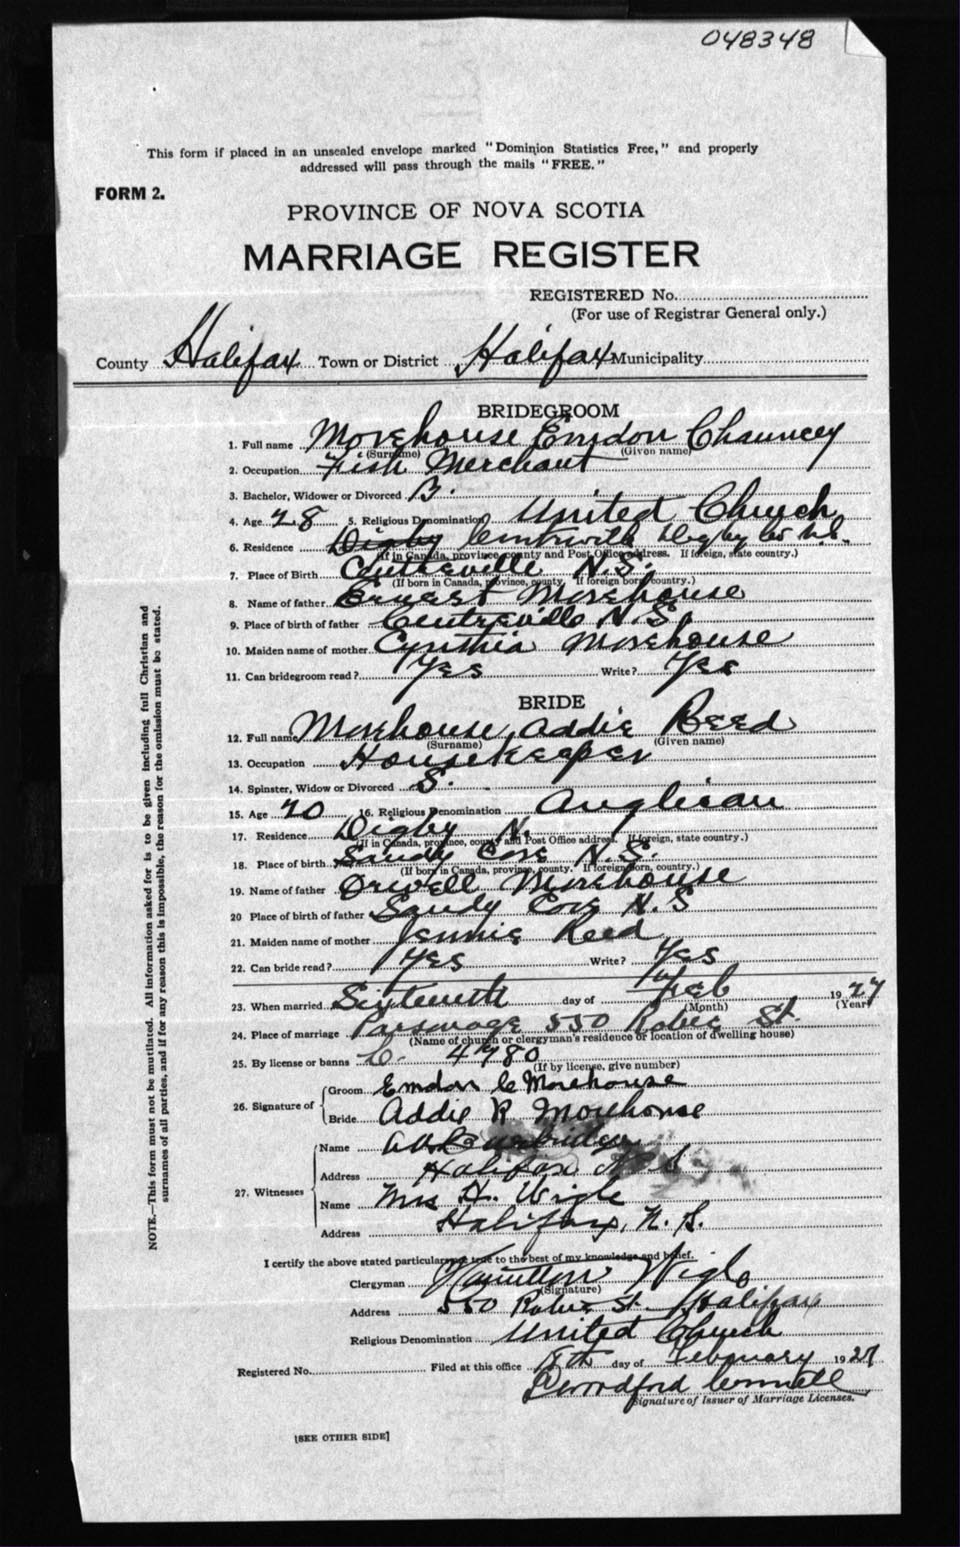 048348
This form if placed in an unsealed envelope marked "Dominion Statistics Free," and properly
addressed will pass through the mails "FREE."
FORM 2.
PROVINCE OF NOVA SCOTIA
MARRIAGE REGISTER
REGISTERED No.
(For use of Registrar General only.)
County Halifax Town or District Halifax Municipality
BRIDEGROOM
1. Full name Morehouse Emdon Chauncey
(Surname) (Given name)
2. Occupation Fish Merchant
3. Bachelor, Widower or Divorced B.
4. Age 28 5. Religious Denomination United Church
6. Residence Digby Centreville Digby Co N.S.
(If in Canada, province, county and Post Office address. If foreign, state country.)
7. Place of Birth Centreville N.S.
(If born in Canada, province, county, If foreign born, country.)
8. Name of father Ernest Morehouse
9. Place of birth of father Centreville N.S.
10. Maiden name of mother Cynthia Morehouse
11. Can bridegroom read? Yes Write? Yes
BRIDE
12. Full name Morehouse, Addie Reed
(Surname) (Given name)
13. Occupation Housekeeper
14. Spinster, Widow or Divorced S.
15. Age 20 16. Religious Denomination Anglican
17. Residence Digby N.
(If in Canada, province, county and Post Office address. If foreign, state country.)
18. Place of birth Sandy Cove N.S.
(If born in Canada, province, county. If foreign born, country.)
19. Name of father Orvell Morehouse
20 Place of birth of father Sandy Cove N.S
21. Maiden name of mother Jennie Reed
22. Can bride read? Yes Write? Yes
23. When married Sixteenth day of Feb 1927
(Month) (Year)
24. Place of marriage Parsonage 550 Robie St.
(Name of church or clergyman's residence or location of dwelling house)
25. By license or banns L. 4780
(If by license, give number)
26. Signature of
Groom Emdon C Morehouse
Bride Addie R Morehouse
27. Witnesses
Name
Address Halifax N S
Name Mrs H. Wigle
Address Halifax, N. S.
I certify the above stated particulars are true to the best of my knowledge and belief.
Clergyman Hamilton Wigle
(Signature)
Address 550 Robie St. Halifax
Religious Denomination United Church
Registered No. Filed at this office day of February 1927
Connell
Signature of Issuer of Marriage Licenses.
[SEE OTHER SIDE]
NOTE.—This form must not be mutilated. All information asked for is to be given including full Christian and
surnames of all parties, and if for any reason this is impossible, the reason for the omission must be stated.